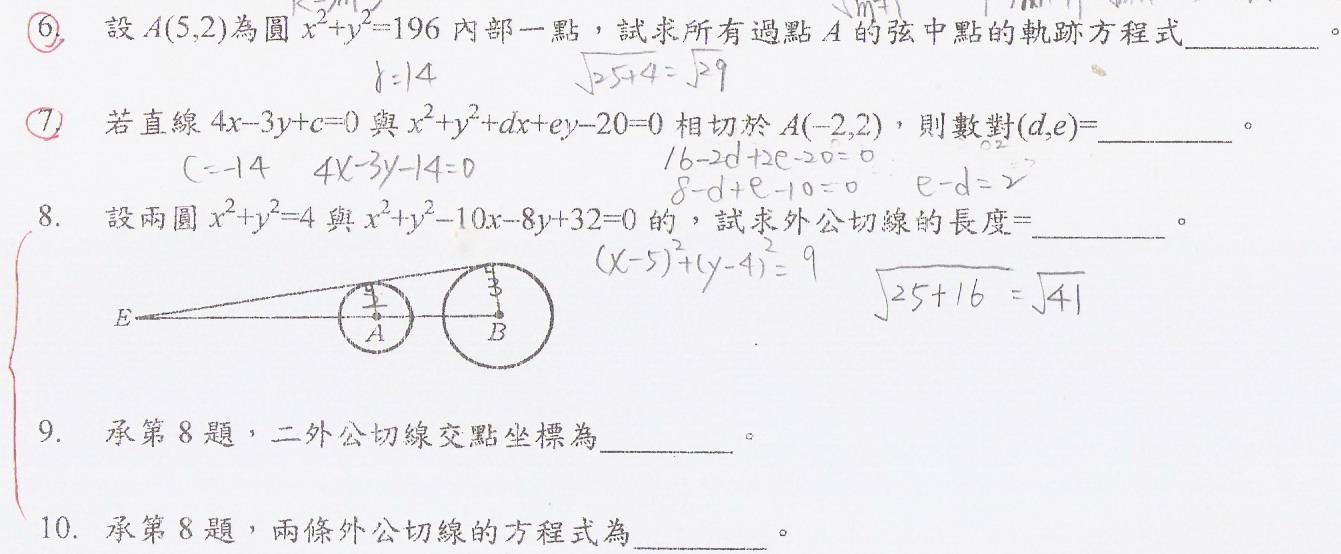 6. 設 A(5,2)為圓 x²+y²=196 內部一點，試求所有過點 A 的弦中點的軌跡方程式________。
r=14 √25+4=√29
7. 若直線 4x−3y+c=0 與 x²+y²+dx+ey−20=0 相切於 A(−2,2)，則數對(d,e)=________。
C=-14 4x-3y-14=0 16-2d+2e-20=0
8-d+e-10=0 e-d=2
8. 設兩圓 x²+y²=4 與 x²+y²−10x−8y+32=0 的，試求外公切線的長度=________。
(x-5)²+(y-4)²=9 √25+16=√41
3
E A B
9. 承第 8 題，二外公切線交點坐標為________。
10. 承第 8 題，兩條外公切線的方程式為________。